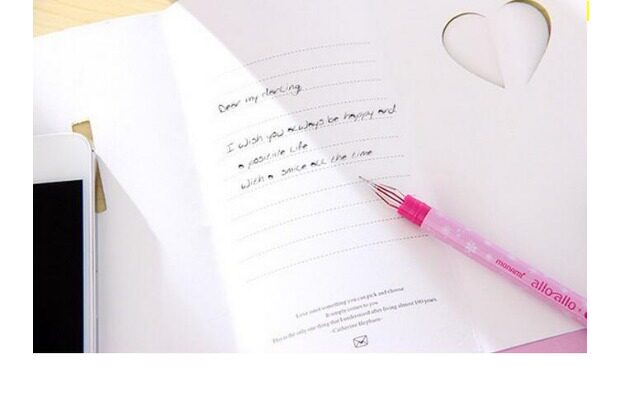 Dear my darling
I wish you always be happy and
a positive life
with a smile all the time
Love isnt something you can pick and choose
It simply comes to you
This is the only one thing that I understood after living almost 100 years.
-Catherine Hepburn-
monami
allo-allo